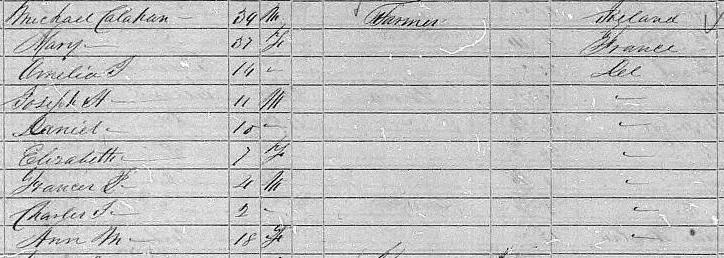 Michael Calahan — 39 M Farmer Ireland
Mary — 37 F France
Amelia J 14 " Del
Joseph H — 11 M "
Daniel — 10 " "
Elizabeth — 7 F "
Francis P — 4 M "
Charles F — 2 " "
Ann M — 18 F "